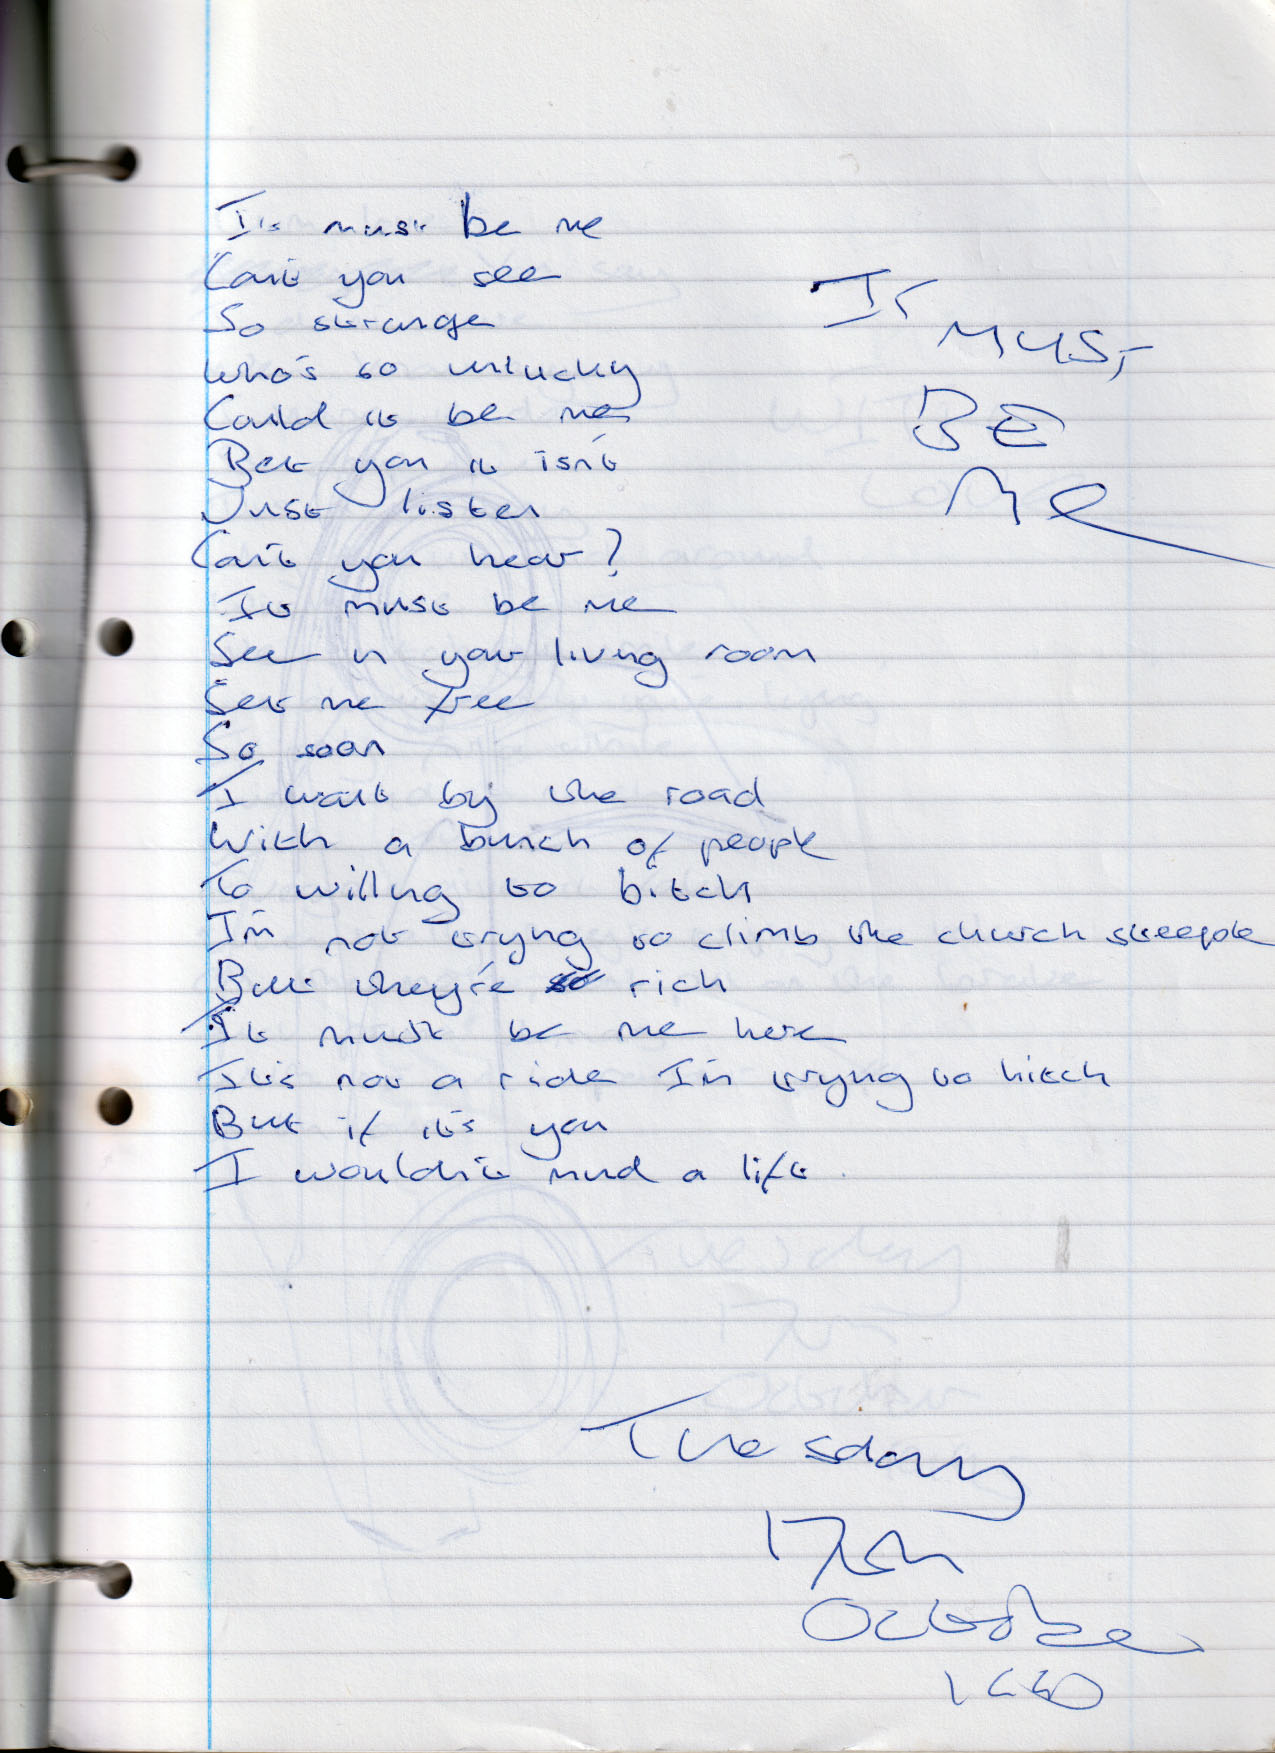 It must be me
Can't you see
So strange
Who's so unlucky
Could it be me
Bet you it isn't
Just listen
Can't you hear?
It must be me
See in your living room
Set me free
So soon
I wait by the road
With a bunch of people
To willing to bitch
I'm not trying to climb the church steeple
But they're so rich
It must be me here
It's not a ride I'm trying to hitch
But if it's you
I wouldn't mind a lift.
IT
MUST
BE
Me
Tuesday
17th
October
1990